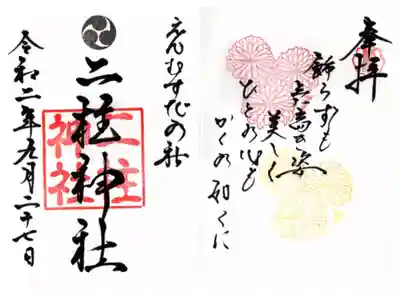 奉拝
飾らずも
の姿
美しく
ひとの心も
かくの如くに
えんむすびの社
二柱神社
二柱
神社
令和二年九月二十七日